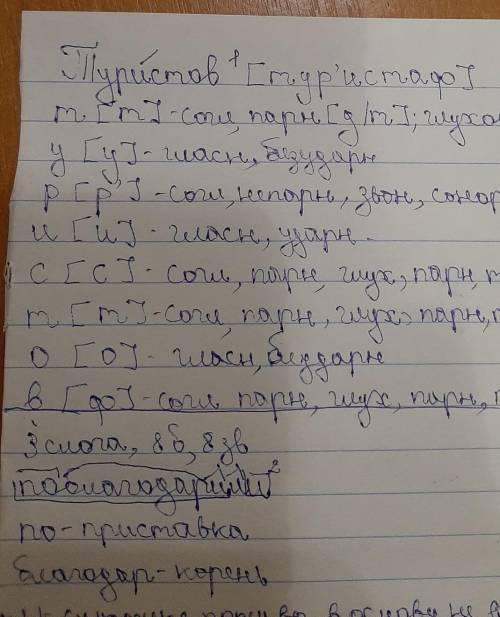 Тури́стов¹ [тур'истаф]
т [т] - согл, парн [д/т]; глухо
у [у] - гласн, безударн
р [р'] - согл, непарн, звон, сонор
и [и] - гласн, ударн.
с [с] - согл, парн, глух, парн, т
т [т] - согл, парн, глух, парн, т
о [о] - гласн, безударн
в [ф] - согл парн, глух, парн, т
3 слога, 8 б, 8 зв
поблагодарили²
по - приставка
благодар - корень
в основу не